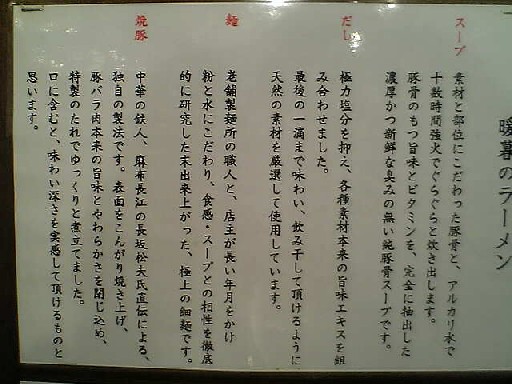 暖暮のラーメン
スープ
素材と部位にこだわった豚骨と、アルカリ水で
十数時間強火でぐらぐらと炊き出します。
豚骨のもつ旨味とビタミンを、完全に抽出した
濃厚かつ新鮮な臭みの無い純豚骨スープです。
だし
極力塩分を抑え、各種素材本来の旨味エキスを組
み合わせました。
最後の一滴まで味わい、飲み干して頂けるように
天然の素材を厳選して使用しています。
麺
老舗製麺所の職人と、店主が長い年月をかけ
粉と水にこだわり、食感・スープとの相性を徹底
的に研究した末出来上がった、極上の細麺です。
焼豚
中華の鉄人、麻布長江の長坂松夫氏直伝による、
独自の製法です。表面をこんがり焼き上げ、
豚バラ肉本来の旨味とやわらかさを閉じ込め、
特製のたれでゆっくりと煮立てました。
口に含むと、味わい深さを実感して頂けるものと
思います。